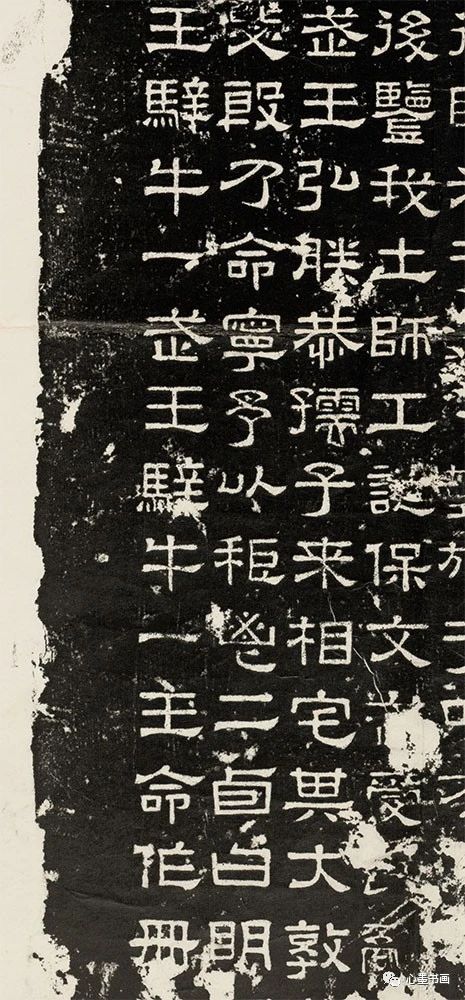 後監我士師工誕保文武受民亂
武王弘朕恭孺子来相宅其大敦
毖殷乃命寧予以秬鬯二卣曰明
王騂牛一武王騂牛一主命作冊
书画